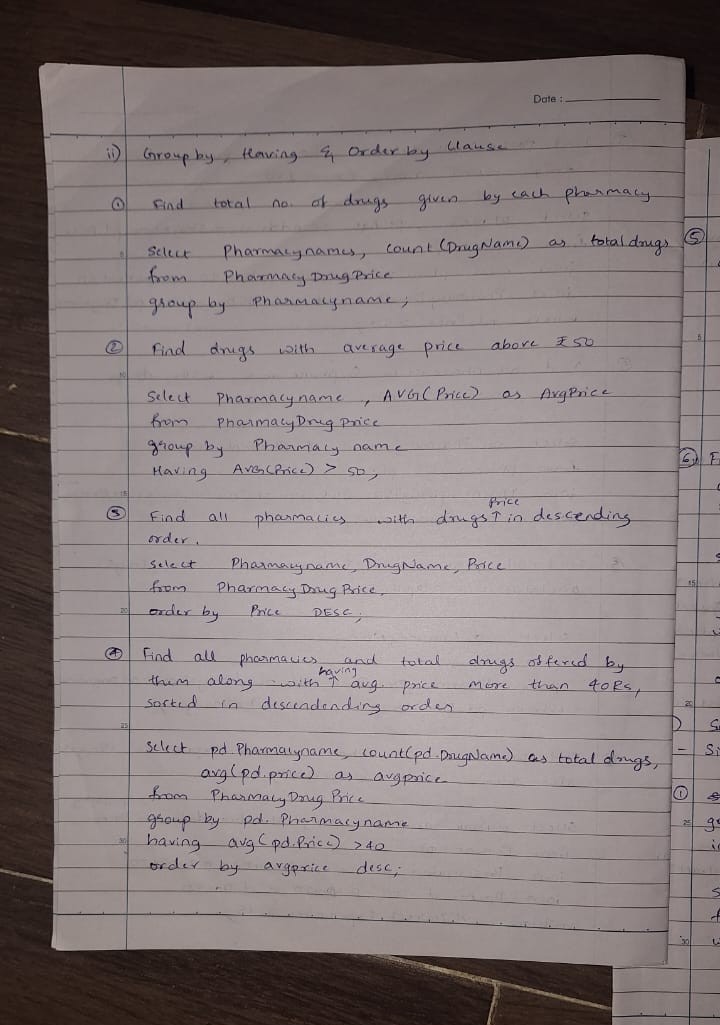 Date :
ii) Group by, Having & Order by Clause
① Find total no. of drugs given by each pharmacy
Select Pharmacynames, count (DrugName) as total drugs
from Pharmacy Drug Price
group by Pharmacyname;
② Find drugs with average price above ₹50
Select Pharmacyname, AVG(Price) as AvgPrice
from PharmacyDrug Price
group by Pharmacy name
Having AVG(Price) > 50;
③ Find all pharmacies with drugs ↑ Price in descending
order.
Select Pharmacyname, DrugName, Price
from Pharmacy Drug Price,
order by Price DESC;
④ Find all pharmacies and total drugs offered by
them along with ↑ having avg price more than 40Rs,
sorted in descendending order
Select pd.Pharmacyname, count(pd.DrugName) as total drugs,
avg(pd.price) as avgprice
from Pharmacy Drug Price
group by pd. Pharmacyname
having avg (pd.Price) >40
order by avgprice desc;
10
15
20
25
30
⑤
5
15
25
30
①